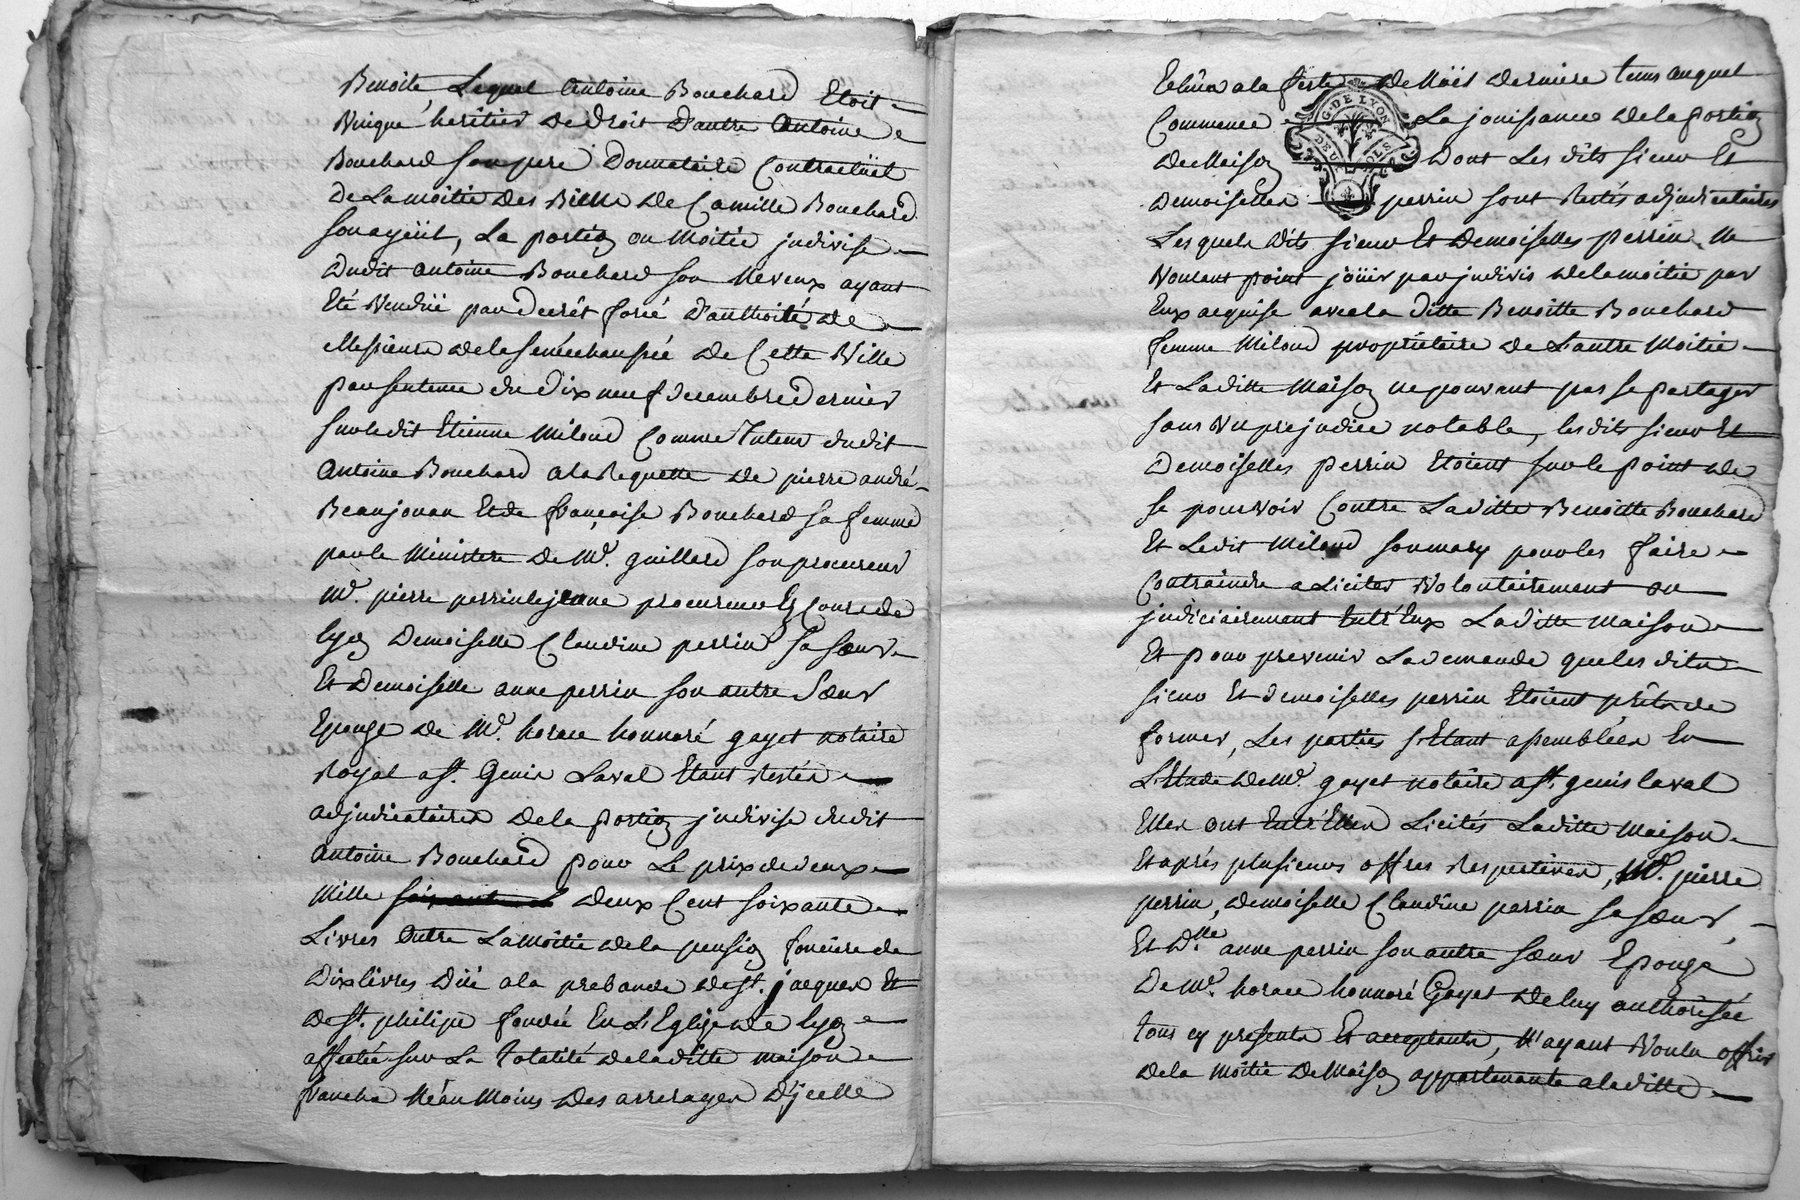 Benoite Lequel Antoine Bouchard Etoit
Unique heritier De droit D'autre Antoine
Bouchard son pere Donnataire Contractüel
De La moitié Des Biens De Camille Bouchard
son ayeül, La portion ou Moitié jndivise
Dudit antoine Bouchard son Neveux ayant
Eté Vendüe par Decrét forcé D'authoité de
Messieurs de la senéchaussée De Cette Ville
par sentence du Dix neuf decembre Dernier
sur ledit Etienne Miloud Comme Tuteur dudit
Antoine Bouchard a la Requette De pierre andré
Beaujouan Et de françoise Bouchard sa femme
par le Ministere De Me. guillard son procureur
Me. pierre perrin lejeune procureur Es Cours de
lyon Demoiselle Claudine perrin sa sœur
Et Demoiselle anne perrin son autre sœur
Epouze De Me. horace honnoré gayet notaire
Royal a st. Genis Laval Etant Restés
adjudicataires De la portion jndivise dudit
Antoine Bouchard pour Le prix de deux
Mille deux Cent soixante
Livres Outre La Moitié de la pension fonciere de
Dix livres Düe a la prebande de st. jacques Et
de st. philipe fondée En L'Eglize de lyon
affectée sur La Totalité de la ditte maison
franche Néan Moins Des arrerages D'jcelle
a la feste De Noël Derniere tems auquel
G. DE LYON
Commence La jouissance de la portion
DEUX SOLS
De Maison Dont Les dits sieur Et
Demoiselles perrin sont Restés adjudicataires
Lesquels Dits sieur Et Demoiselles perrin Ne
Voulant point joüir par jndivis de la moitié par
Eux acquise avec la Ditte Benoitte Bouchard
femme Miloud propriétaire De L'autre Moitié
Et La ditte Maison ne pouvant pas se partager
sans Un prejudice notable, les dits sieur Et
Demoiselles perrin Etoient sur le point de
se pourvoir Contre La ditte Benoitte Bouchard
Et Ledit Miloud son mary pour les faire
Contraindre a Liciter Volontairement ou
judiciairement Entr'Eux La ditte Maison
Et pour prevenir La demande que les dits
sieur Et demoiselles perrin Etoient prêts de
former, Les parties s'Etant assemblées En
L'Etude de Me. gayet notaire a st. genis laval
Elles ont Entr'Elles Licités La ditte Maison
Et aprés plusieurs offres Respectives, Me. pierre
perrin, demoiselle Claudine perrin sa sœur,
Et Dlle. anne perrin son autre sœur Epouze
De Me. horace honnoré Gayet De luy authorisée
tous cy presents Et acceptants, N'ayant Voulu offrir
de la Moitié De Maison appartenante a la ditte